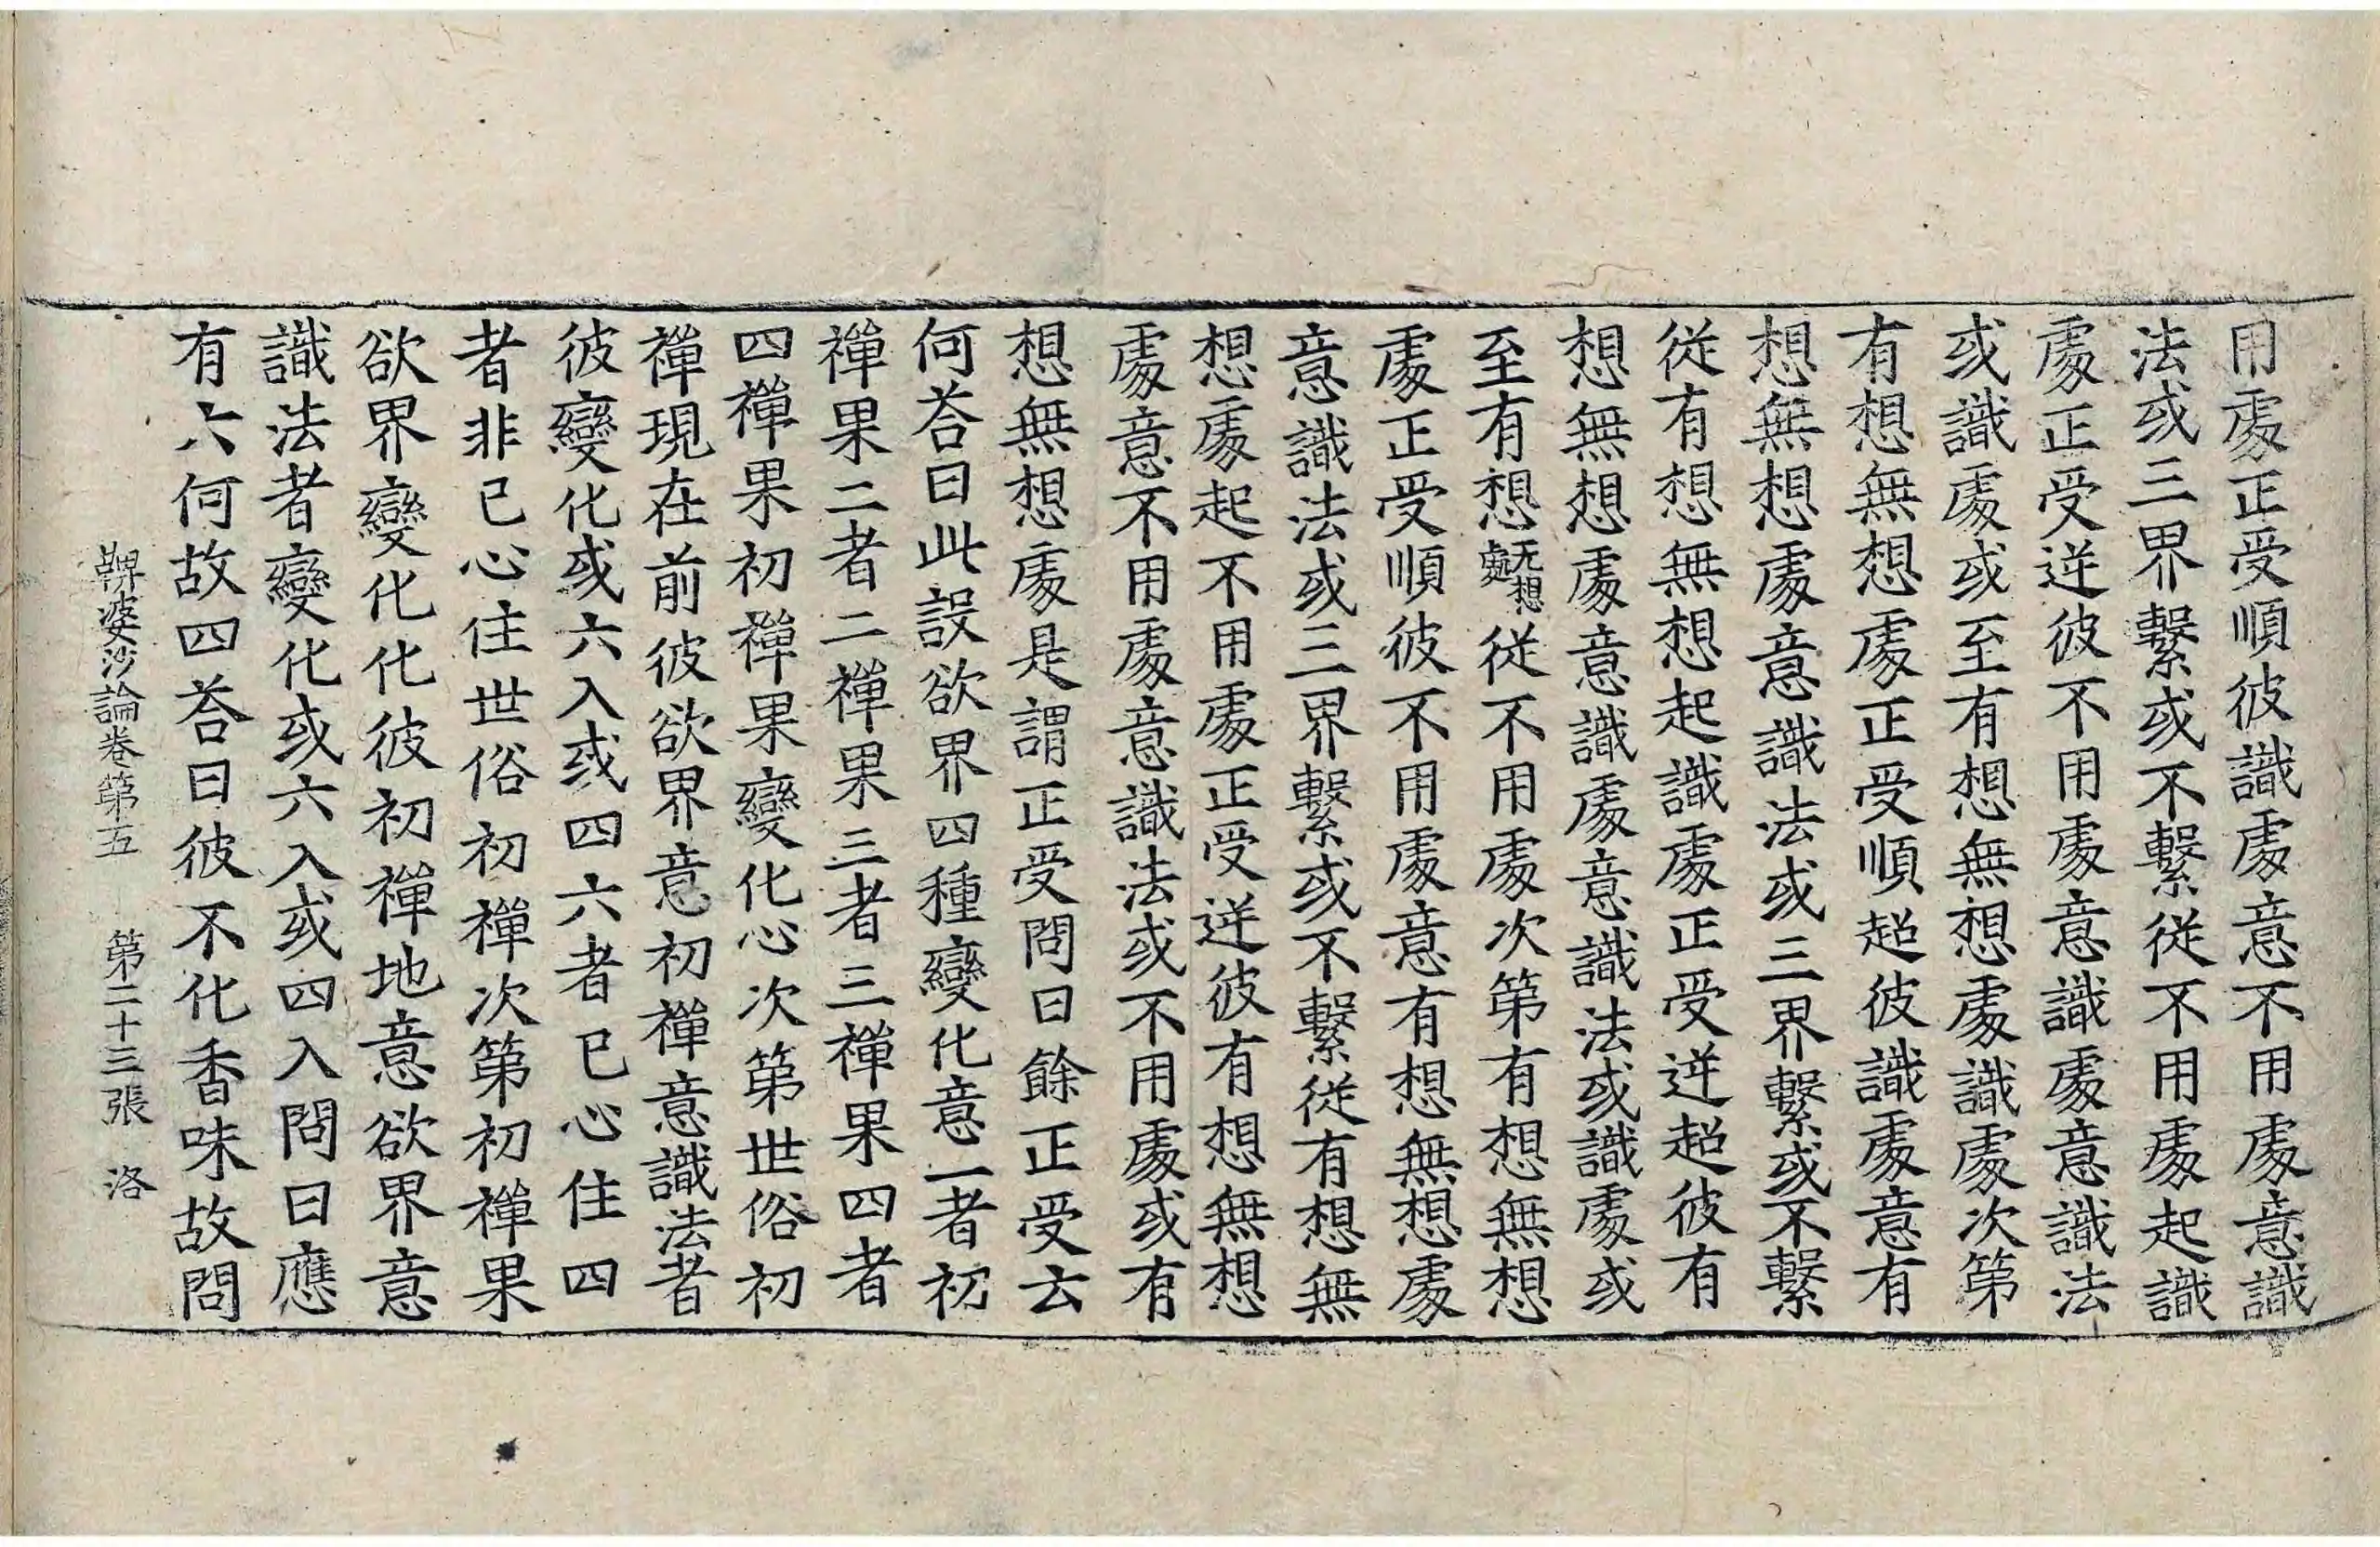 用處正受順彼識處意不用處意識
法或三界繫或不繫從不用處起識
處正受逆彼不用處意識處意識法
或識處或至有想無想處識處次第
有想無想處正受順超彼識處意有
想無想處意識法或三界繫或不繫
從有想無想起識處正受逆超彼有
想無想處意識處意識法或識處或
至有想无想處從不用處次第有想無想
處正受順彼不用處意有想無想處
意識法或三界繫或不繫從有想無
想處起不用處正受逆彼有想無想
處意不用處意識法或不用處或有
想無想處是謂正受問曰餘正受云
何荅曰此說欲界四種變化意一者初
禪果二者二禪果三者三禪果四者
四禪果初禪果變化心次第世俗初
禪現在前彼欲界意初禪意識法者
彼變化或六入或四六者已心住四
者非已心住世俗初禪次第初禪果
欲界變化化彼初禪地意欲界意
識法者變化或六入或四入問曰應
有六何故四荅曰彼不化香味故問
鞞婆沙論卷第五　第二十三張　洛